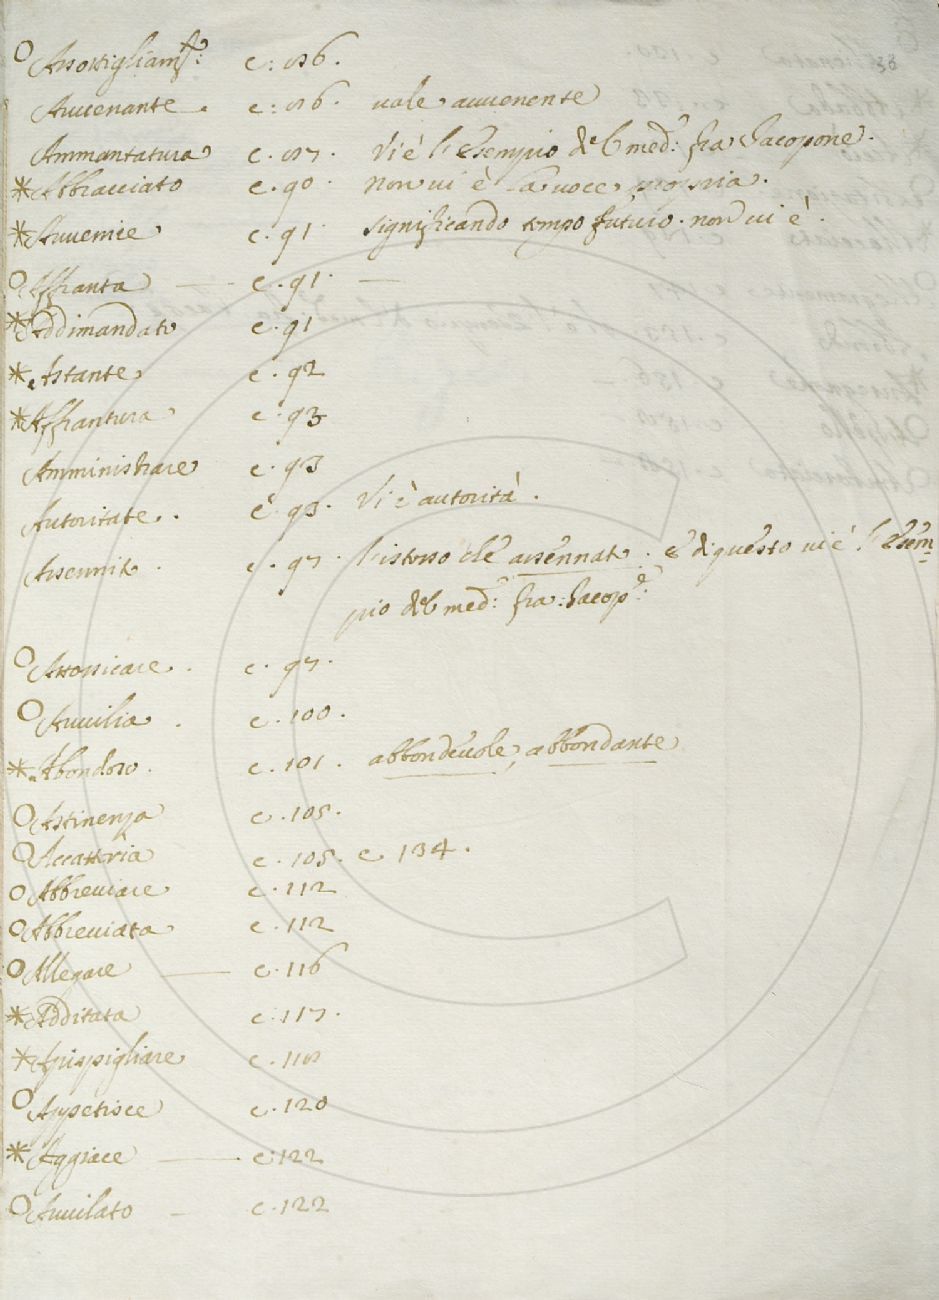 38
O Assottigliam.to: c: 86.
Auuenante. c: 86. uale auuenente
Ammantatura c. 87. Vi è l'Esempio del med.o: fra Jacopone.
* Abbracciato c. 90. non ui è la uoce propria.
* Auuemie c. 91. significando tempo futuro. non ui è.
O Affranta — c. 91. —
* Addimandato c. 91
* Astante c. 92
* Affrantura c. 93
Amministrare c. 93
Autoritate. c. 93. Vi è autorità.
Arsennit. c. 97. l'istesso che arsennat. e di questo ui è l'Esem=
pio del med.o: fra: Jacop.e:
O Attossicare. c. 97.
O Auuilia. c. 100.
* Abondoso. c. 101. abbondeuole, abbondante
O Astinenza c. 105.
O Accattria c. 105. e 134.
O Abbreuiare c. 112
O Abbreuiata c. 112
O Allegare — c. 116
* Additata c. 117.
* Apispigliare c. 118
O Appetisce c. 120
* Aggiace — c. 122
O Auuilato — c. 122